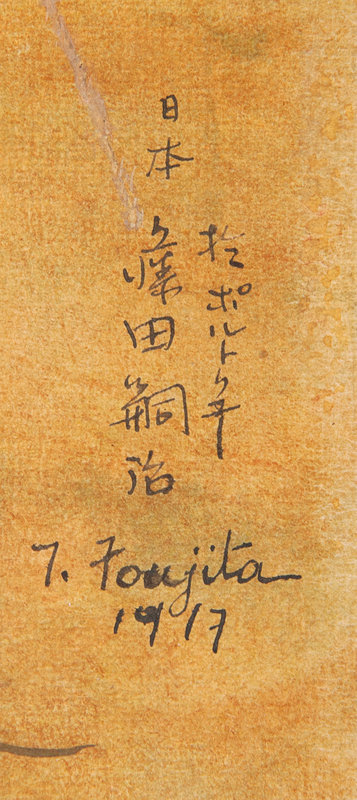 於ポルト
日本 藤田嗣治
T. Foujita
1917